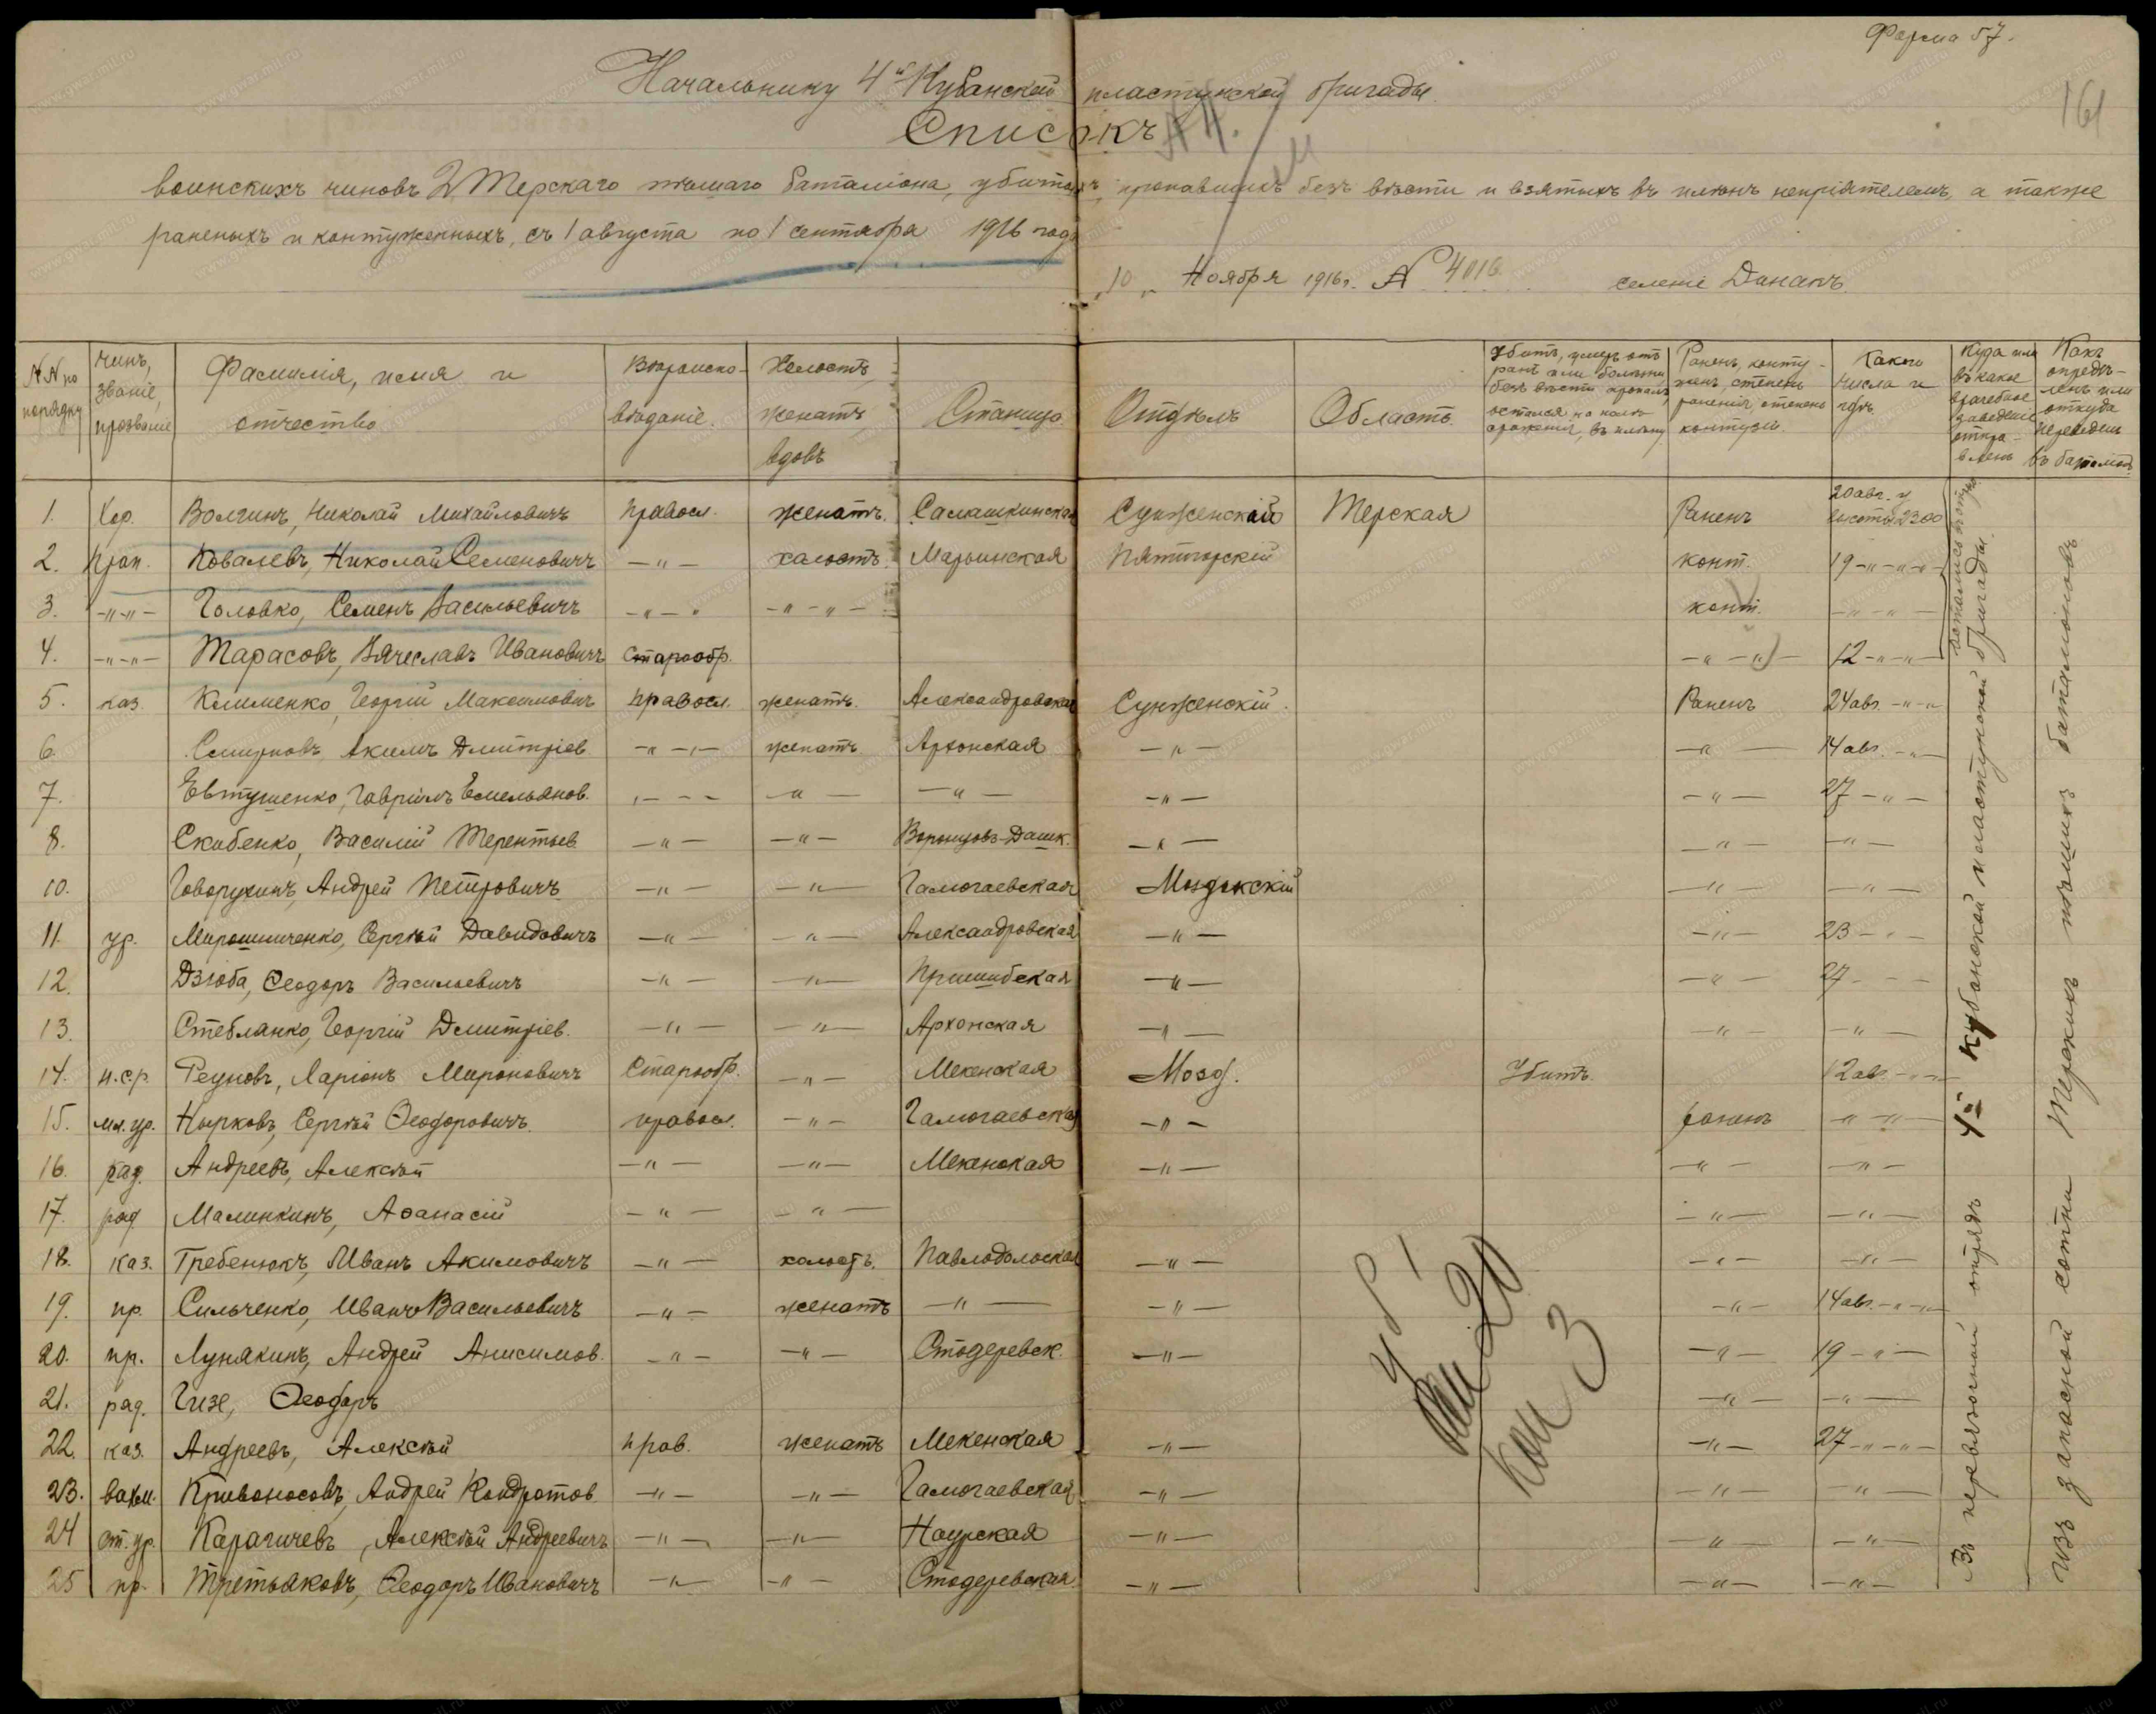 Форма 57.
161
Начальнику 4й Кубанской пластунской бригады.
Списокъ
воинскихъ чиновъ 2 Терскаго пѣшаго баталіона, убитыхъ, пропавшихъ безъ вѣсти и взятыхъ въ плѣнъ непріятелемъ, а также
раненыхъ и контуженныхъ, съ 1 августа по 1 сентября 1916 года
"10" Ноября 1916 г. № 4016 селеніе Дананъ.
№№ по порядку | Чинъ, званіе, прозваніе | Фамилія, имя и отчество | Вѣроисповѣданіе. | Холостъ, женатъ, вдовъ | Станица. | Отдѣлъ | Область. | Убитъ, умеръ отъ ранъ или болѣзни, безъ вѣсти пропалъ, остался на полѣ сраженія, въ плѣну | Раненъ, контуженъ, степень раненія, степень контузіи. | Какого числа и гдѣ. | Куда или въ какое врачебное заведеніе отправленъ | Какъ опредѣленъ или откуда переведенъ въ баталіонъ
1. Хор. Волгинъ, Николай Михайловичъ Правосл. женатъ. Самашкинская Сунженскій Терская Раненъ 20 авг. у высоты 2300
2. Прап. Ковалевъ, Николай Семеновичъ —"— холостъ. Марьинская Пятигорскій конт. 19 —"—"—"—
3. —"—"— Головко, Семенъ Васильевичъ —"—" —"—"— конт. —"—"—
4. —"—"— Тарасовъ, Вячеславъ Ивановичъ Старообр. —"—"— 12 —"—"—
5. каз. Клименко, Георгій Максимовичъ Правосл. женатъ. Александровская Сунженскій. Раненъ 24 авг. —"—"
6. Смирновъ, Акимъ Дмитріев. —"—"— женатъ Архонская —"— —"— 14 авг. —"—
7. Евтушенко, Гавріилъ Емельянов. —"— —"— —"— —"— —"— 27 —"—
8. Скибенко, Василій Терентьев. —"— —"— Воронцовъ-Дашк. —"— —"— —"—
10. Говорухинъ, Андрей Петровичъ. —"— —"— Галюгаевская Моздокскій —"— —"—
11. ур. Мирошниченко, Сергѣй Давидовичъ —"— —"— Александровская —"— —"— 23 —"—
12. Дзюба, Ѳеодоръ Васильевичъ —"— —"— Пришибская —"— —"— 27 —"—
13. Стебланко, Георгій Дмитріев. —"— —"— Архонская —"— —"— —"—
14. н.с.р. Реуновъ, Ларіонъ Мироновичъ Старообр. —"— Мекенская Мозд. Убитъ. 12 авг. —"—
15. мл. ур. Нырковъ, Сергѣй Ѳеодоровичъ. правосл. —"— Галюгаевская —"— раненъ —"—"—
16. ряд. Андреевъ, Алексѣй —"— —"— Мекенская —"— —"— —"—
17. ряд. Малинкинъ, Аѳанасій —"— —"— —"— —"—
18. каз. Гребенюкъ, Иванъ Акимовичъ —"— холостъ. Павлодольская —"— —"— —"—
19. пр. Сильченко, Иванъ Васильевичъ —"— женатъ —"— —"— —"— 14 авг. —"—
20. пр. Лунякинъ, Андрей Анисимов. —"— —"— Стодеревск. —"— —"— 19 —"—
21. ряд. Гизе, Ѳеодоръ —"— —"—
22. каз. Андреевъ, Алексѣй прав. женатъ Мекенская —"— —"— 27 —"—"—
23. вахм. Кривоносовъ, Андрей Кондратов. —"— —"— Галюгаевская —"— —"— —"—
24 ст. ур. Карагичевъ, Алексѣй Андреевичъ —"— —"— Наурская —"— —"— —"—
25 пр. Третьяковъ, Ѳеодоръ Ивановичъ —"— —"— Стодеревская —"— —"— —"—
уб 1
ран 20
кон 3
остались въ строю
Въ перевязочный отрядъ 4й Кубанской пластунской бригады.
Изъ запасной сотни Терскихъ пѣшихъ баталіоновъ